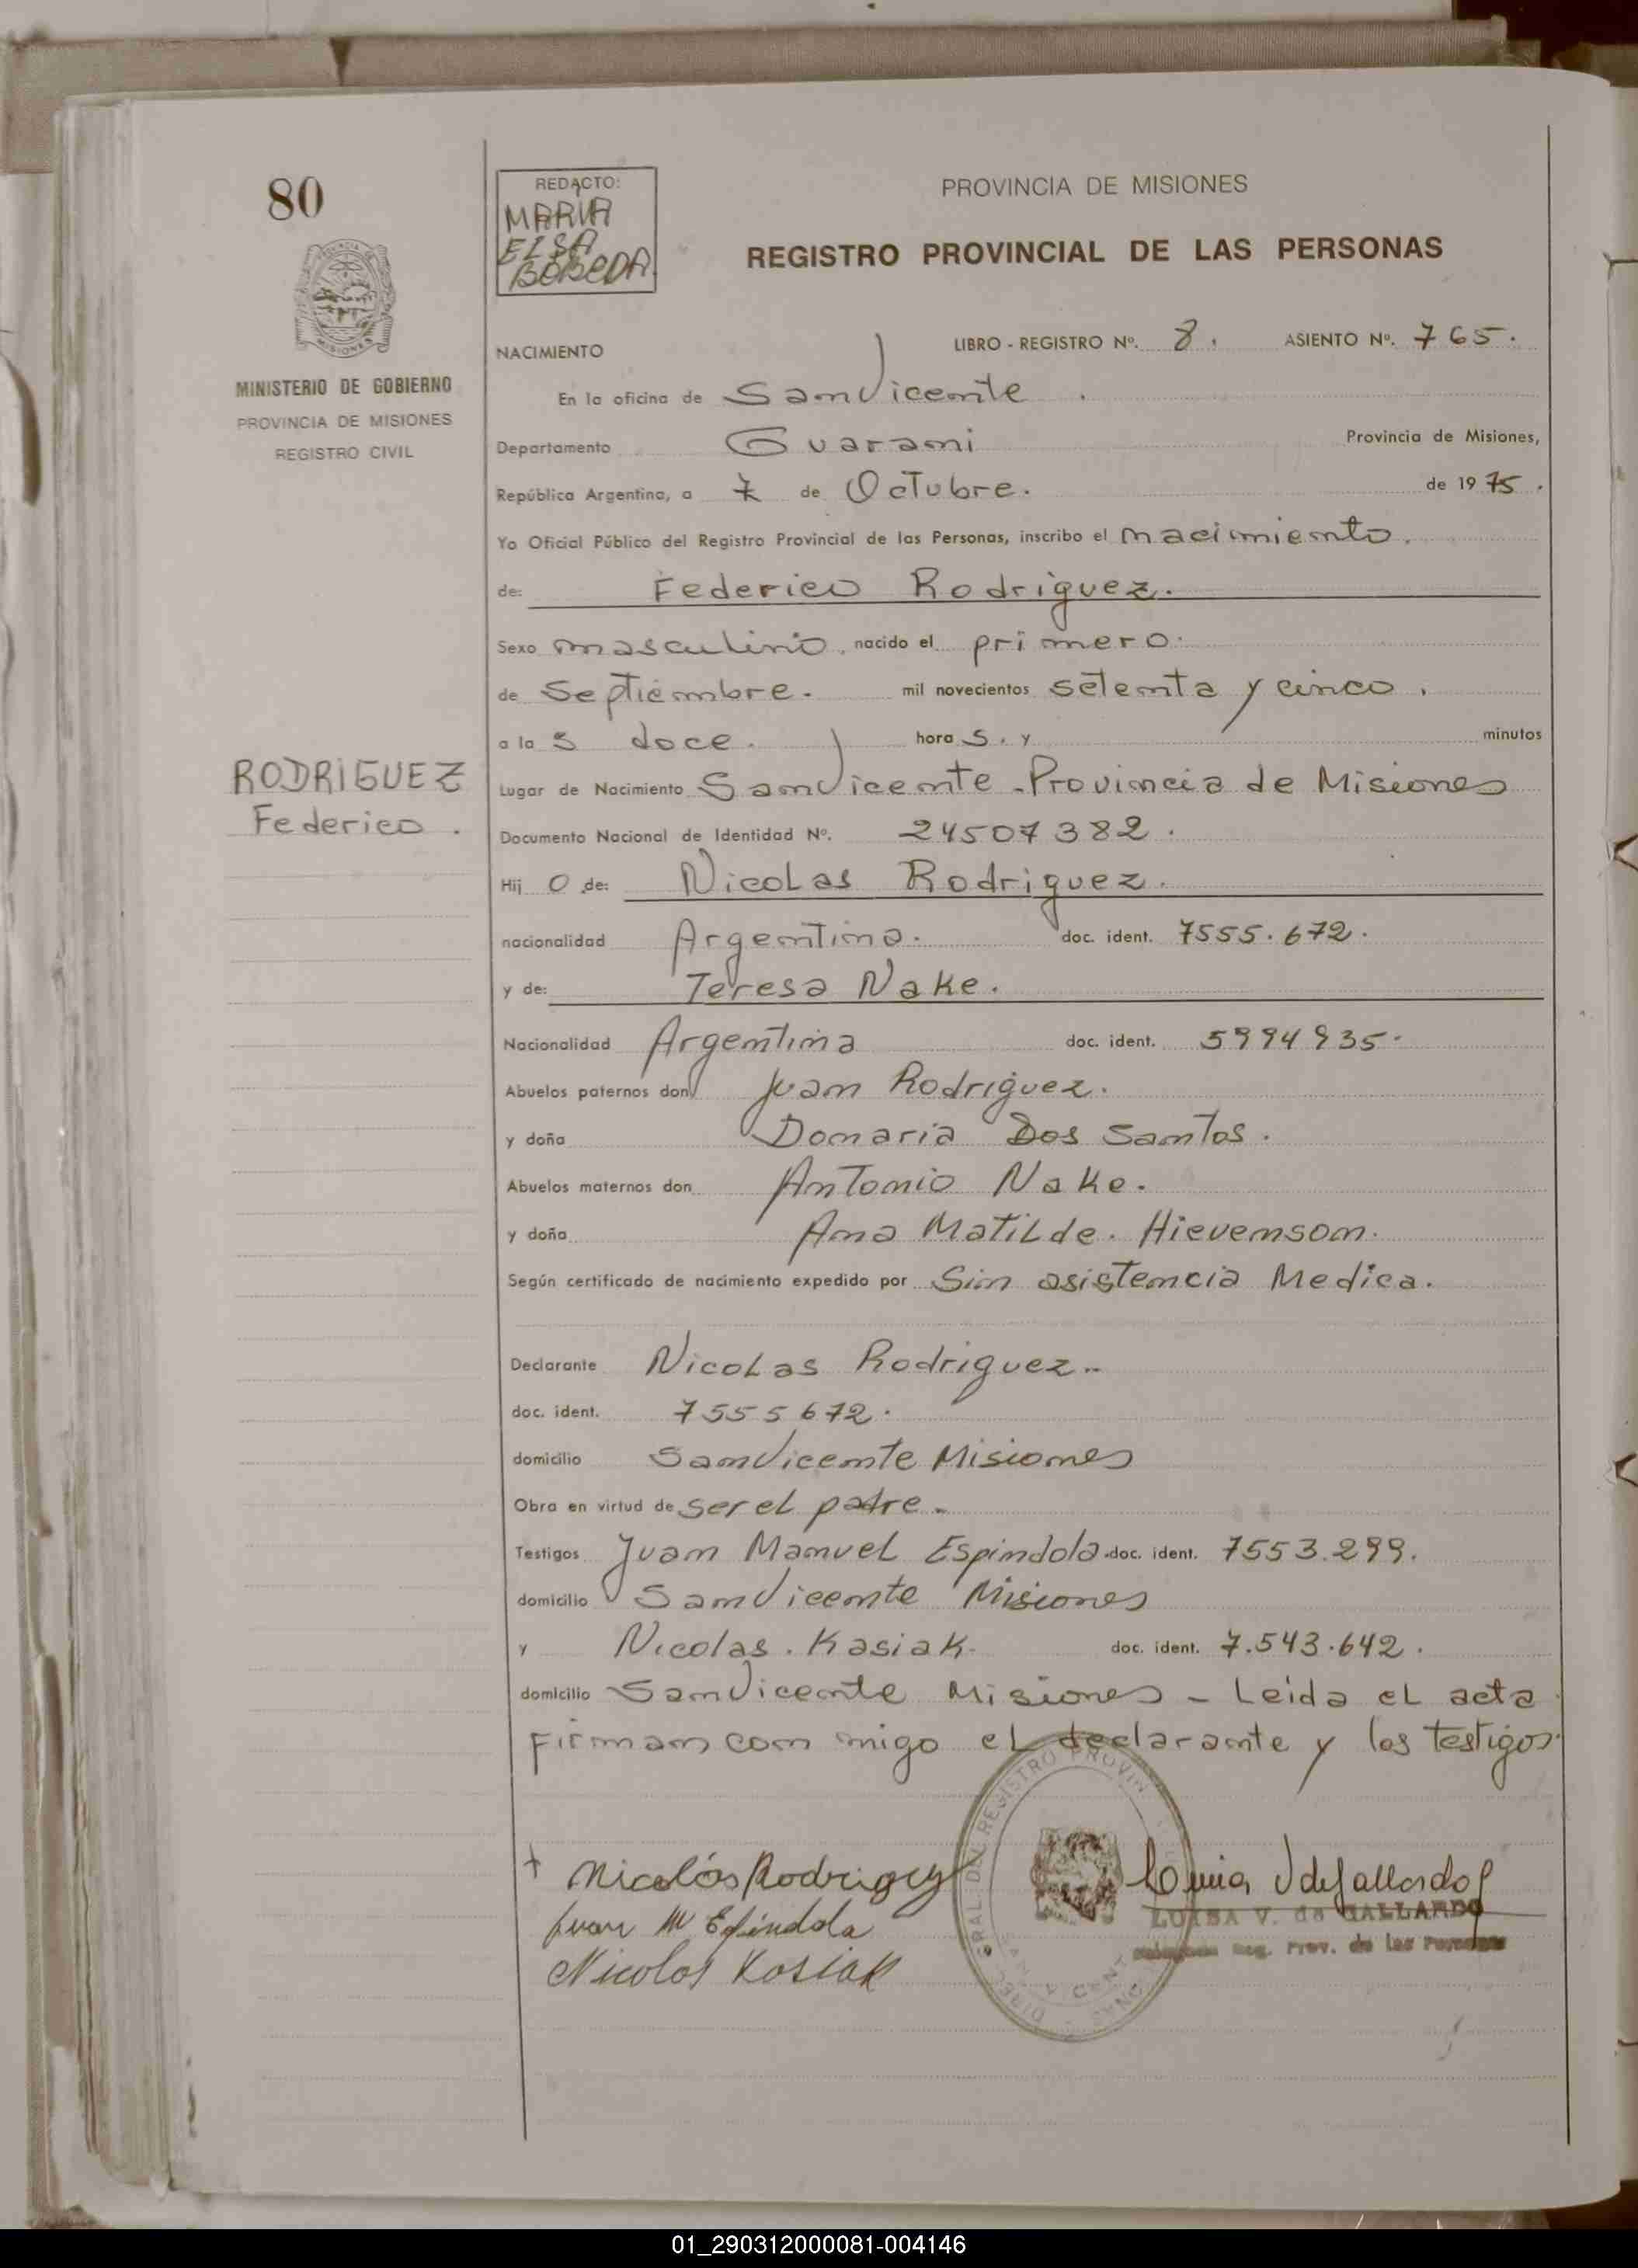 80
REDACTO:
MARIA
ELSA
BOBEDA
PROVINCIA DE MISIONES
REGISTRO PROVINCIAL DE LAS PERSONAS
PROVINCIA
MISIONES
MINISTERIO DE GOBIERNO
PROVINCIA DE MISIONES
REGISTRO CIVIL
NACIMIENTO
LIBRO - REGISTRO Nº. 8. ASIENTO Nº. 765.
En la oficina de San Vicente.
Departamento Guarani Provincia de Misiones,
República Argentina, a 7 de Octubre. de 1975.
Yo Oficial Público del Registro Provincial de las Personas, inscribo el nacimiento.
de: Federico Rodriguez.
Sexo masculino, nacido el primero.
de Septiembre. mil novecientos setenta y cinco.
a las doce. horas. y minutos
Lugar de Nacimiento San Vicente - Provincia de Misiones
RODRIGUEZ
Federico.
Documento Nacional de Identidad Nº. 24507382.
Hijo de: Nicolas Rodriguez.
nacionalidad Argentina. doc. ident. 7555.672.
y de: Teresa Nake.
Nacionalidad Argentina doc. ident. 5994935.
Abuelos paternos don Juan Rodriguez.
y doña Domaria Dos Santos.
Abuelos maternos don Antonio Nake.
y doña Ana Matilde. Hievenson.
Según certificado de nacimiento expedido por Sin asistencia Medica.
Declarante Nicolas Rodriguez.
doc. ident. 7555672.
domicilio San Vicente Misiones
Obra en virtud de ser el padre.
Testigos Juan Manuel Espindola. doc. ident. 7553.299.
domicilio San Vicente Misiones
y Nicolas. Kasiak. doc. ident. 7.543.642.
domicilio San Vicente Misiones - Leida el acta
firman con migo el declarante y los testigos.
DIREC. GRAL. DEL REGISTRO PROVIN
Nicolás Rodriguez
Juan M Espindola
Nicolas Kosiak
Luisa V de Gallardo
LUISA V. de GALLARDO
Reg. Prov. de las Personas
01_290312000081-004146